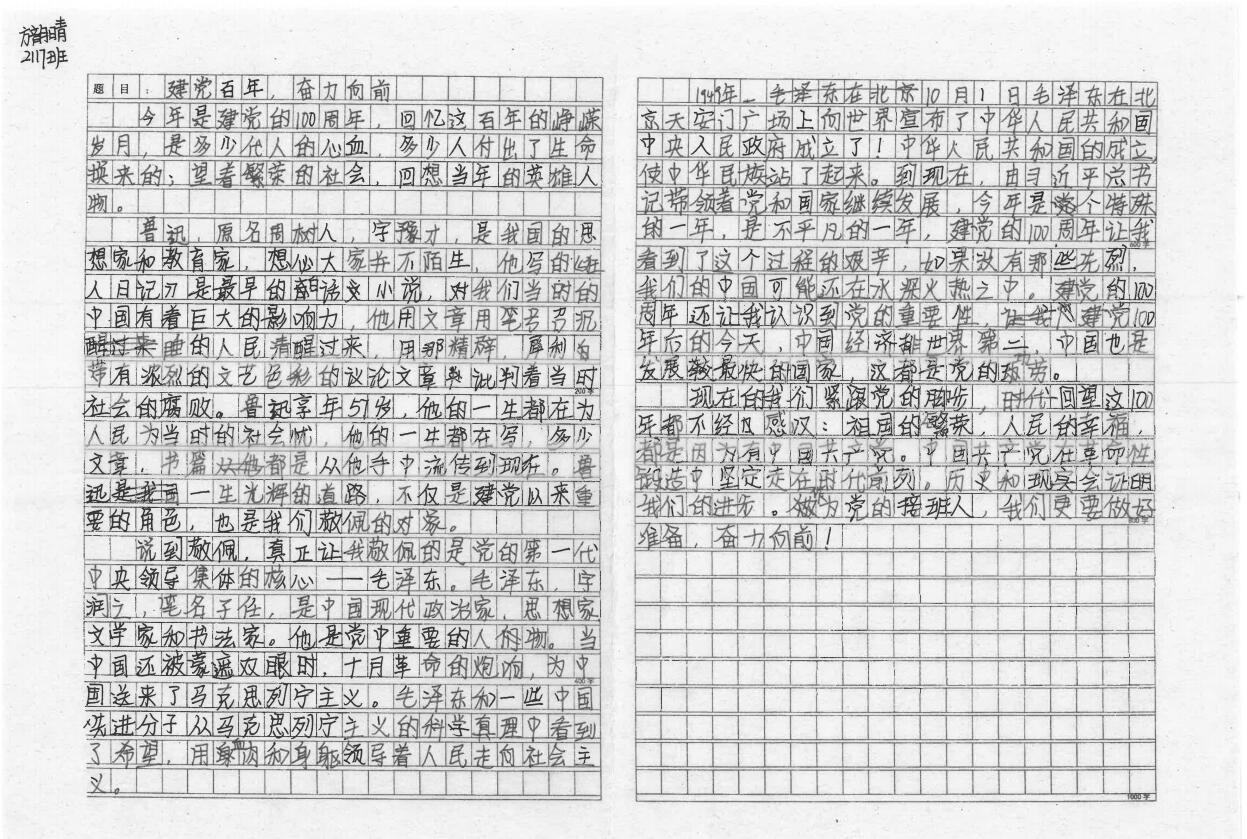 方韵晴
2117班
题目：建党百年，奋力向前
今年是建党的100周年，回忆这百年的峥嵘
岁月，是多少代人的心血，多少人付出了生命
换来的；望着繁荣的社会，回想当年的英雄人
物。
鲁迅，原名周树人，字豫才，是我国的思
想家和教育家，想必大家并不陌生，他写的《狂
人日记》是最早的白话文小说，对我们当时的
中国有着巨大的影响力，他用文章用笔号召沉
的人民清醒过来，用那精辟，犀利自
带有浓烈的文艺色彩的议论文章批判着当时
200字
社会的腐败。鲁迅享年57岁，他的一生都在为
人民为当时的社会忧，他的一生都在写，多少
文章，书篇都是从他手中流传到现在。鲁
迅一生光辉的道路，不仅是建党以来重
要的角色，也是我们敬佩的对象。
说到敬佩，真正让我敬佩的是党的第一代
中央领导集体的核心——毛泽东。毛泽东，字
润之，笔名子任，是中国现代政治家，思想家
文学家和书法家。他是党中重要的人物。当
中国还被蒙遮双眼时，十月革命的炮响，为中
400字
国送来了马克思列宁主义。毛泽东和一些中国
先进分子从马克思列宁主义的科学真理中看到
了希望，用血肉和身躯领导着人民走向社会主
义。
1949年 毛泽东在北京10月1日毛泽东在北
京天安门广场上向世界宣布了中华人民共和国
中央人民政府成立了！中华人民共和国的成立，
使中华民族站了起来。到现在，由习近平总书
记带领着党和国家继续发展，今年是这个特殊
的一年，是不平凡的一年，建党的100周年让我
600字
看到了这个过程的艰辛，如果没有那些先烈，
我们的中国可能还在水深火热之中。建党的100
周年还让我认识到党的重要性，建党100
年后的今天，中国经济排世界第二，中国也是
发展最快的国家，这都是党的功劳。
现在的我们紧跟党的脚步，时代回望这100
年都不经感叹：祖国的繁荣，人民的幸福，
都是因为有中国共产党。中国共产党在革命性
锻造中坚定走在时代前列。历史和现实会证明
我们的进步。做为党的接班人，我们更要做好
800字
准备，奋力向前！
1000字